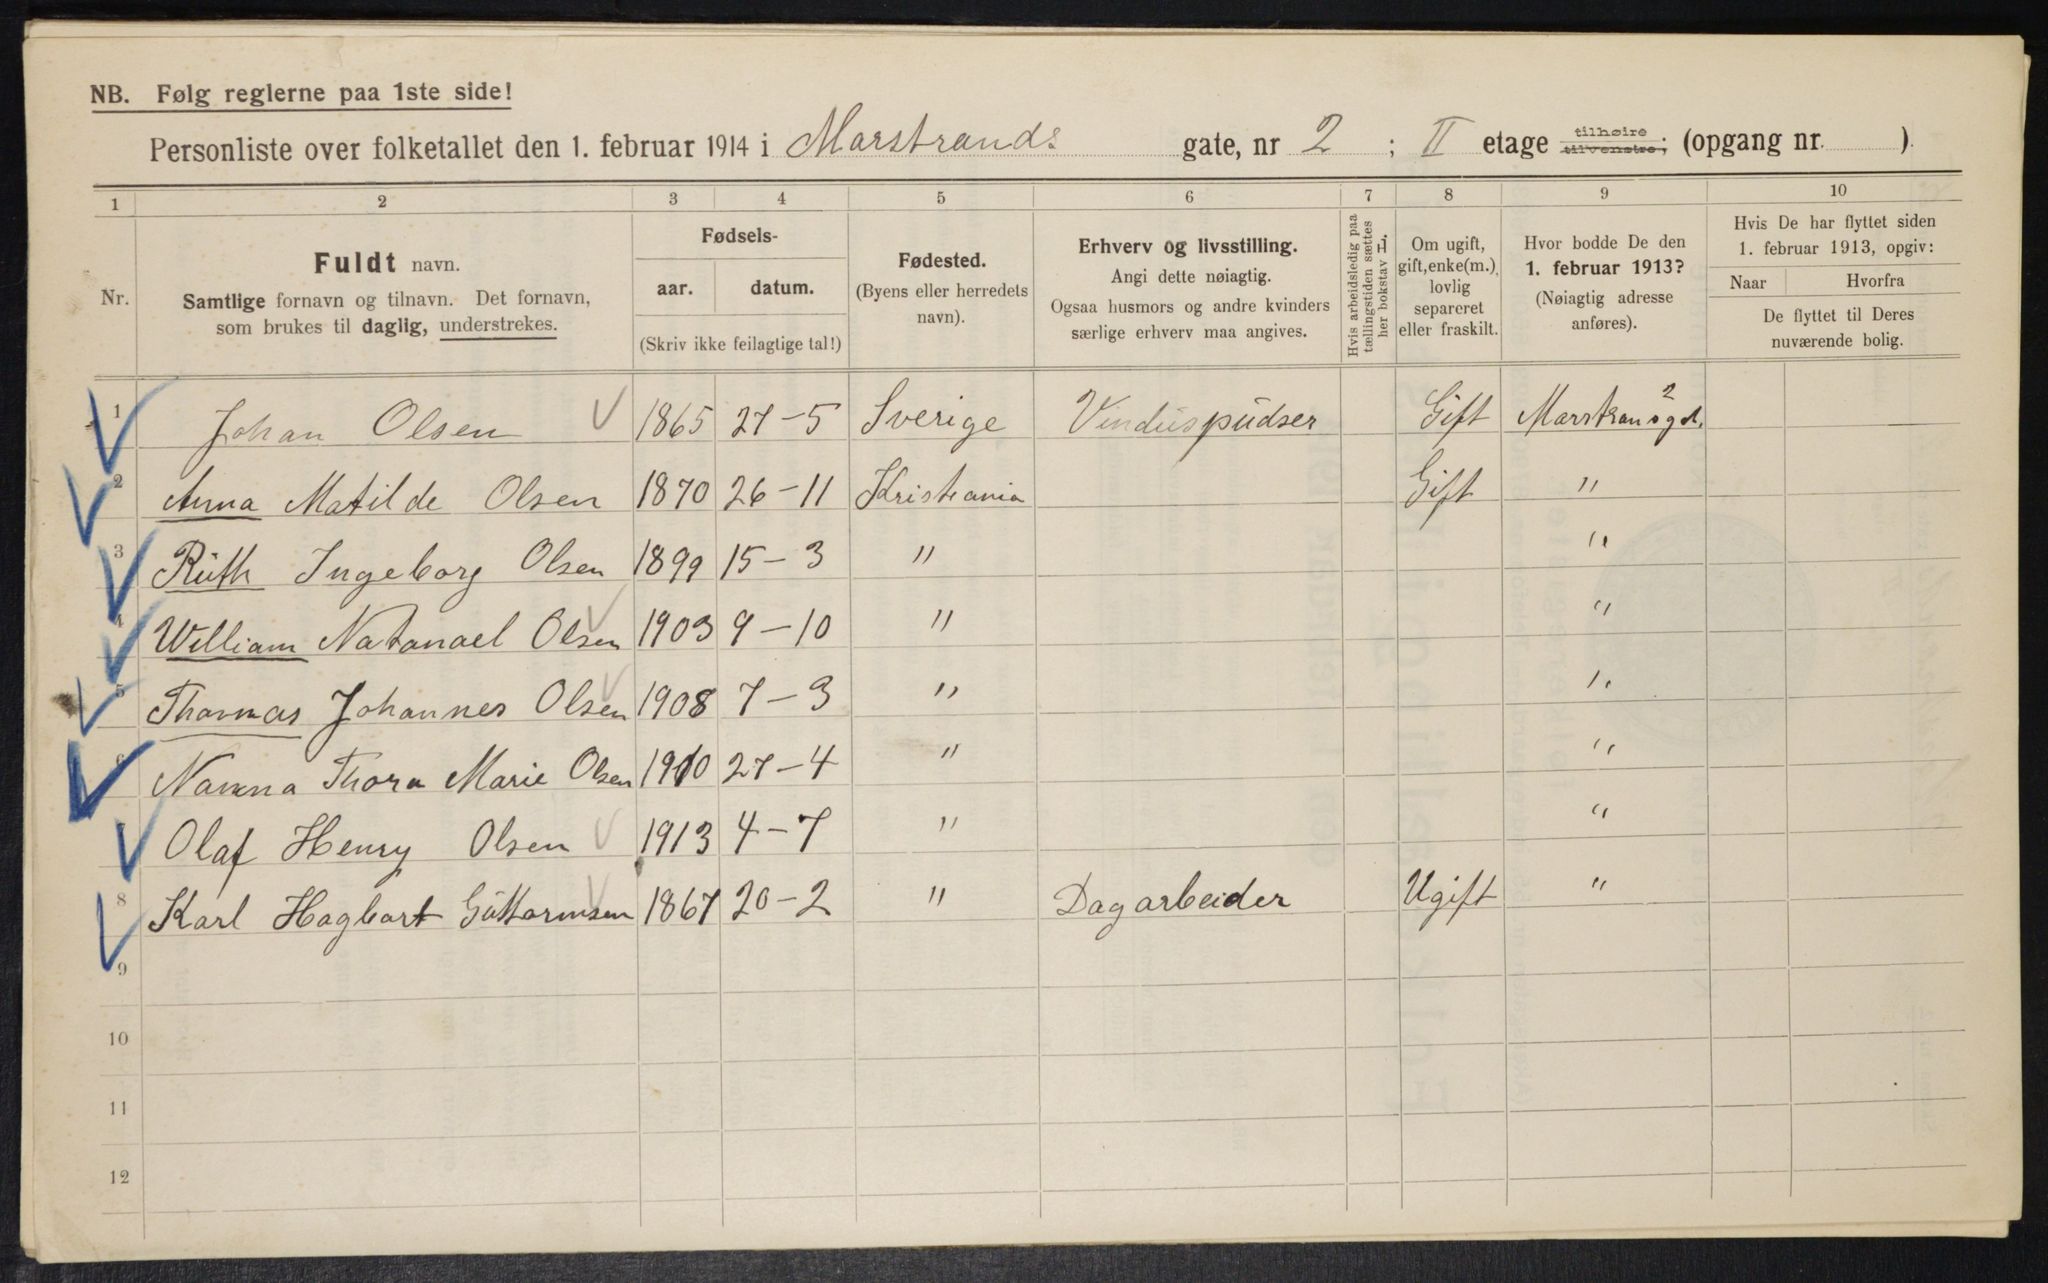 NB. Følg reglerne paa 1ste side!
Personliste over folketallet den 1. februar 1914 i Marstrands gate, nr 2 ; II etage tilhøire tilvenstre; (opgang nr. ).
1 2 3 4 5 6 7 8 9 10
Nr.
Fuldt navn.
Samtlige fornavn og tilnavn. Det fornavn,
som brukes til daglig, understrekes.
Fødsels-
aar. datum.
(Skriv ikke feilagtige tal!)
Fødested.
(Byens eller herredets
navn).
Erhverv og livsstilling.
Angi dette nøiagtig.
Ogsaa husmors og andre kvinders
særlige erhverv maa angives.
Hvis arbeidsledig paa
tællingstiden sættes
her bokstav L.
Om ugift,
gift, enke(m.),
lovlig
separeret
eller fraskilt.
Hvor bodde De den
1. februar 1913?
(Nøiagtig adresse
anføres).
Hvis De har flyttet siden
1. februar 1913, opgiv:
Naar Hvorfra
De flyttet til Deres
nuværende bolig.
1 Johan Olsen 1865 27-5 Sverige Vinduspudser Gift Marstransgt. 2
2 Anna Matilde Olsen 1870 26-11 Kristiania Gift "
3 Ruth Ingeborg Olsen 1899 15-3 " "
4 William Natanael Olsen 1903 9-10 " "
5 Thomas Johannes Olsen 1908 7-3 " "
6 Nanna Thora Marie Olsen 1910 27-4 " "
7 Olaf Henry Olsen 1913 4-7 " "
8 Karl Hagbart Guttormsen 1867 20-2 " Dagarbeider Ugift "
9
10
11
12